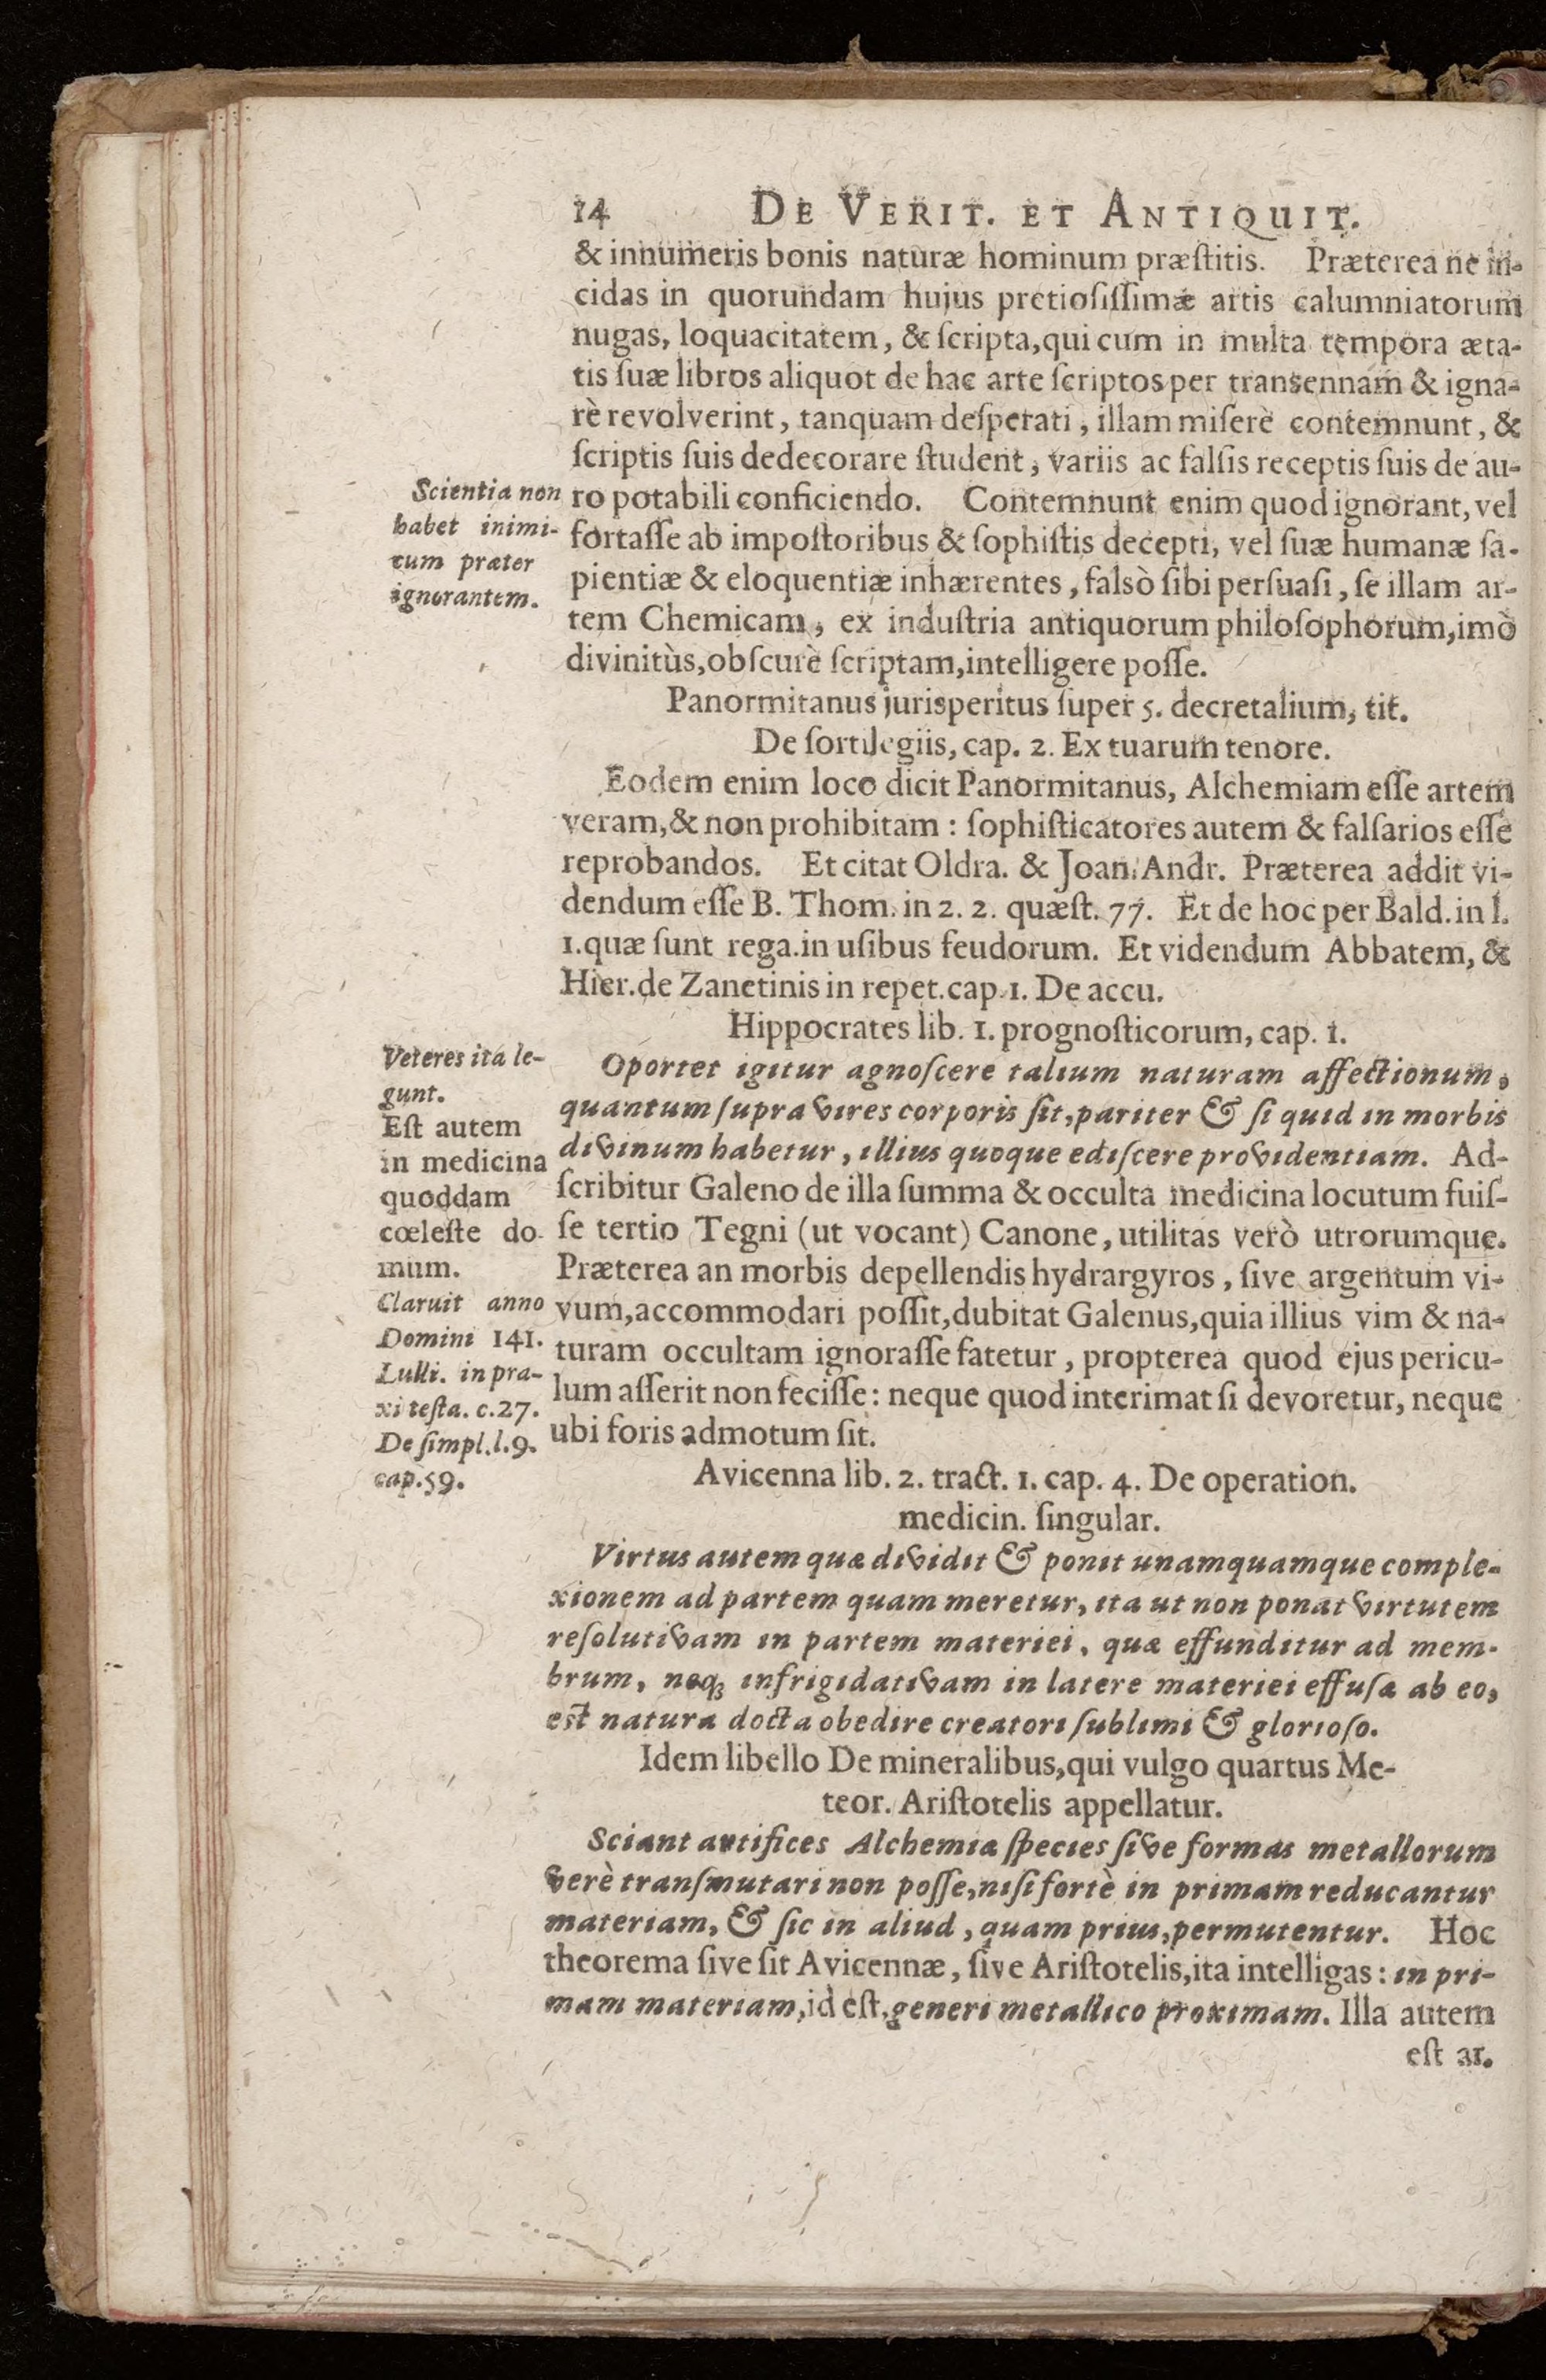 14 DE VERIT. ET ANTIQUIT.
& innumeris bonis naturæ hominum præſtitis. Præterea ne in-
cidas in quorundam hujus pretioſiſſimæ artis calumniatorum
nugas, loquacitatem, & ſcripta, qui cum in multa tempora æta-
tis ſuæ libros aliquot de hac arte ſcriptos per transennam & igna-
rè revolverint, tanquam deſperati, illam miſerè contemnunt, &
ſcriptis ſuis dedecorare ſtudent, variis ac falſis receptis ſuis de au-
ro potabili conficiendo. Contemnunt enim quod ignorant, vel
fortaſſe ab impoſtoribus & ſophiſtis decepti, vel ſuæ humanæ ſa-
pientiæ & eloquentiæ inhærentes, falsò ſibi perſuaſi, ſe illam ar-
tem Chemicam, ex induſtria antiquorum philoſophorum, imò
divinitùs, obſcurè ſcriptam, intelligere poſſe.
Scientia non
habet inimi-
cum præter
ignorantem.
Panormitanus jurisperitus ſuper 5. decretalium, tit.
De ſortilegiis, cap. 2. Ex tuarum tenore.
Eodem enim loco dicit Panormitanus, Alchemiam eſſe artem
veram, & non prohibitam: ſophiſticatores autem & falſarios eſſe
reprobandos. Et citat Oldra. & Joan. Andr. Præterea addit vi-
dendum eſſe B. Thom. in 2. 2. quæſt. 77. Et de hoc per Bald. in l.
1. quæ ſunt rega. in uſibus feudorum. Et videndum Abbatem, &
Hier. de Zanetinis in repet. cap. 1. De accu.
Hippocrates lib. 1. prognoſticorum, cap. 1.
Oportet igitur agnoſcere talium naturam affectionum,
quantum ſupra vires corporis ſit, pariter & ſi quid in morbis
divinum habetur, illius quoque ediſcere providentiam. Ad-
ſcribitur Galeno de illa ſumma & occulta medicina locutum fuiſ-
ſe tertio Tegni (ut vocant) Canone, utilitas verò utrorumque.
Præterea an morbis depellendis hydrargyros, ſive argentum vi-
vum, accommodari poſſit, dubitat Galenus, quia illius vim & na-
turam occultam ignoraſſe fatetur, propterea quod ejus pericu-
lum aſſerit non feciſſe: neque quod interimat ſi devoretur, neque
ubi foris admotum ſit.
Veteres ita le-
gunt.
Eſt autem
in medicina
quoddam
cœleſte do-
mum.
Claruit anno
Domini 141.
Lulli. in pra-
xi teſta. c. 27.
De ſimpl. l. 9.
cap. 59.
Avicenna lib. 2. tract. 1. cap. 4. De operation.
medicin. ſingular.
Virtus autem quæ dividit & ponit unamquamque comple-
xionem ad partem quam meretur, ita ut non ponat virtutem
reſolutivam in partem materiei, quæ effunditur ad mem-
brum, neq; infrigidativam in latere materiei effuſæ ab eo,
eſt natura docta obedire creatori ſublimi & glorioſo.
Idem libello De mineralibus, qui vulgo quartus Me-
teor. Ariſtotelis appellatur.
Sciant artifices Alchemiæ ſpecies ſive formas metallorum
verè tranſmutari non poſſe, niſi fortè in primam reducantur
materiam, & ſic in aliud, quam prius, permutentur. Hoc
theorema ſive ſit Avicennæ, ſive Ariſtotelis, ita intelligas: in pri-
mam materiam, id eſt, generi metallico proximam. Illa autem
eſt ar-